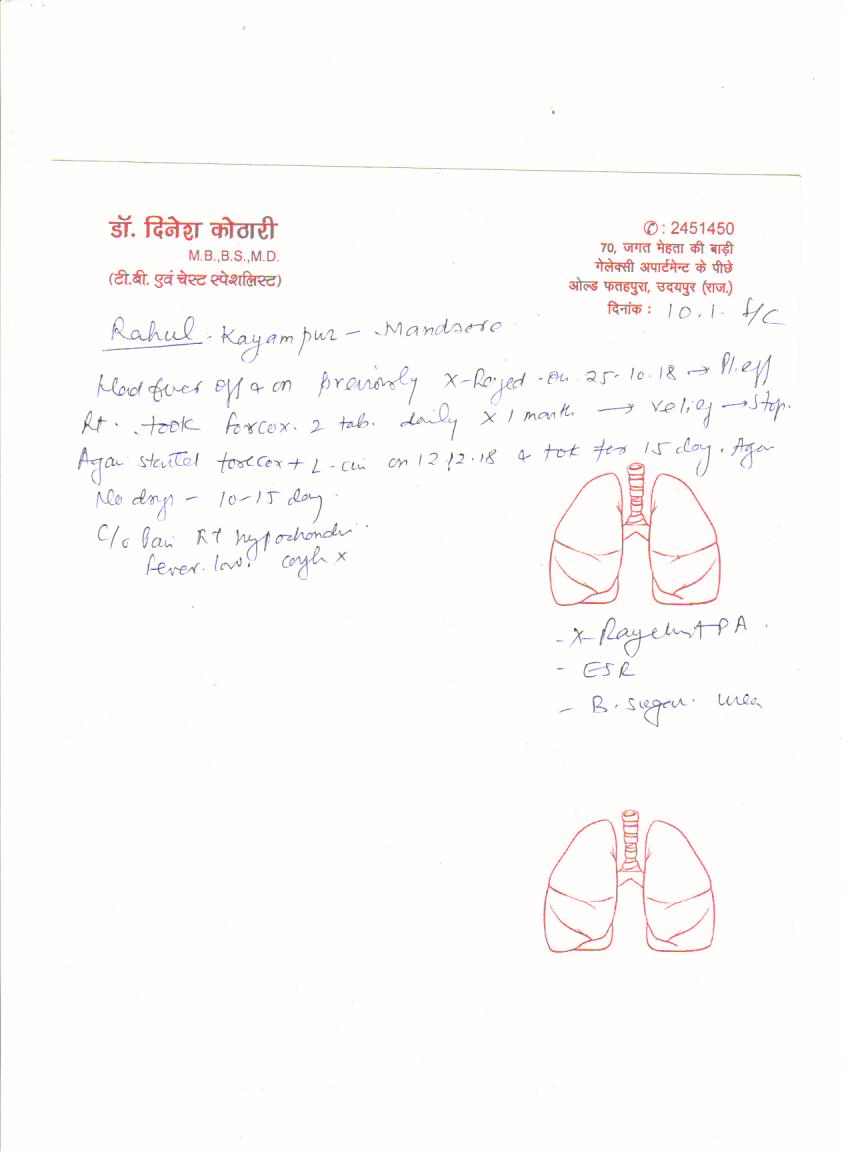 डॉ. दिनेश कोठारी
M.B.,B.S.,M.D.
(टी.बी. एवं चेस्ट स्पेशलिस्ट)
✆: 2451450
70, जगत मेहता की बाड़ी
गेलेक्सी अपार्टमेन्ट के पीछे
ओल्ड फतहपुरा, उदयपुर (राज.)
दिनांक : 10.1.
Rahul. Kayampur - Mandsore
Had fever off & on previously X-Rayed on 25.10.18 → Pl. eff
Rt. took forecox. 2 tab. daily x 1 month → relief → stop.
Again started forecox + L-cin on 12.12.18 & took for 15 day. Again
No drugs - 10-15 day
C/o Pain Rt hypochondri.
fever. low. cough x
- X-Ray chest PA
- ESR
- B. sugar. urea